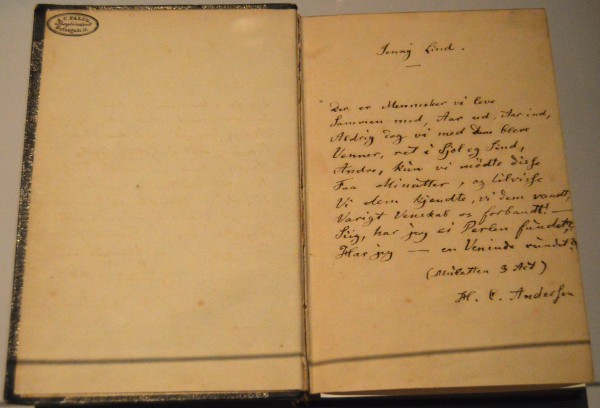 Jenny Lind.
Der er Mennesker vi leve
Sammen med, Aar ud, Aar ind,
Aldrig dog vi med dem bleve
Venner, ret i Sjæl og Sind,
Andre, kun vi mødte disse
Faa Minutter, og tilvisse
Vi dem kjendte, vi dem vandt,
Varigt Venskab os forbandt! —
Siig, har jeg ei Perlen fundet,
Har jeg — en Veninde vundet?
(Mulatten 3 Act)
H. C. Andersen